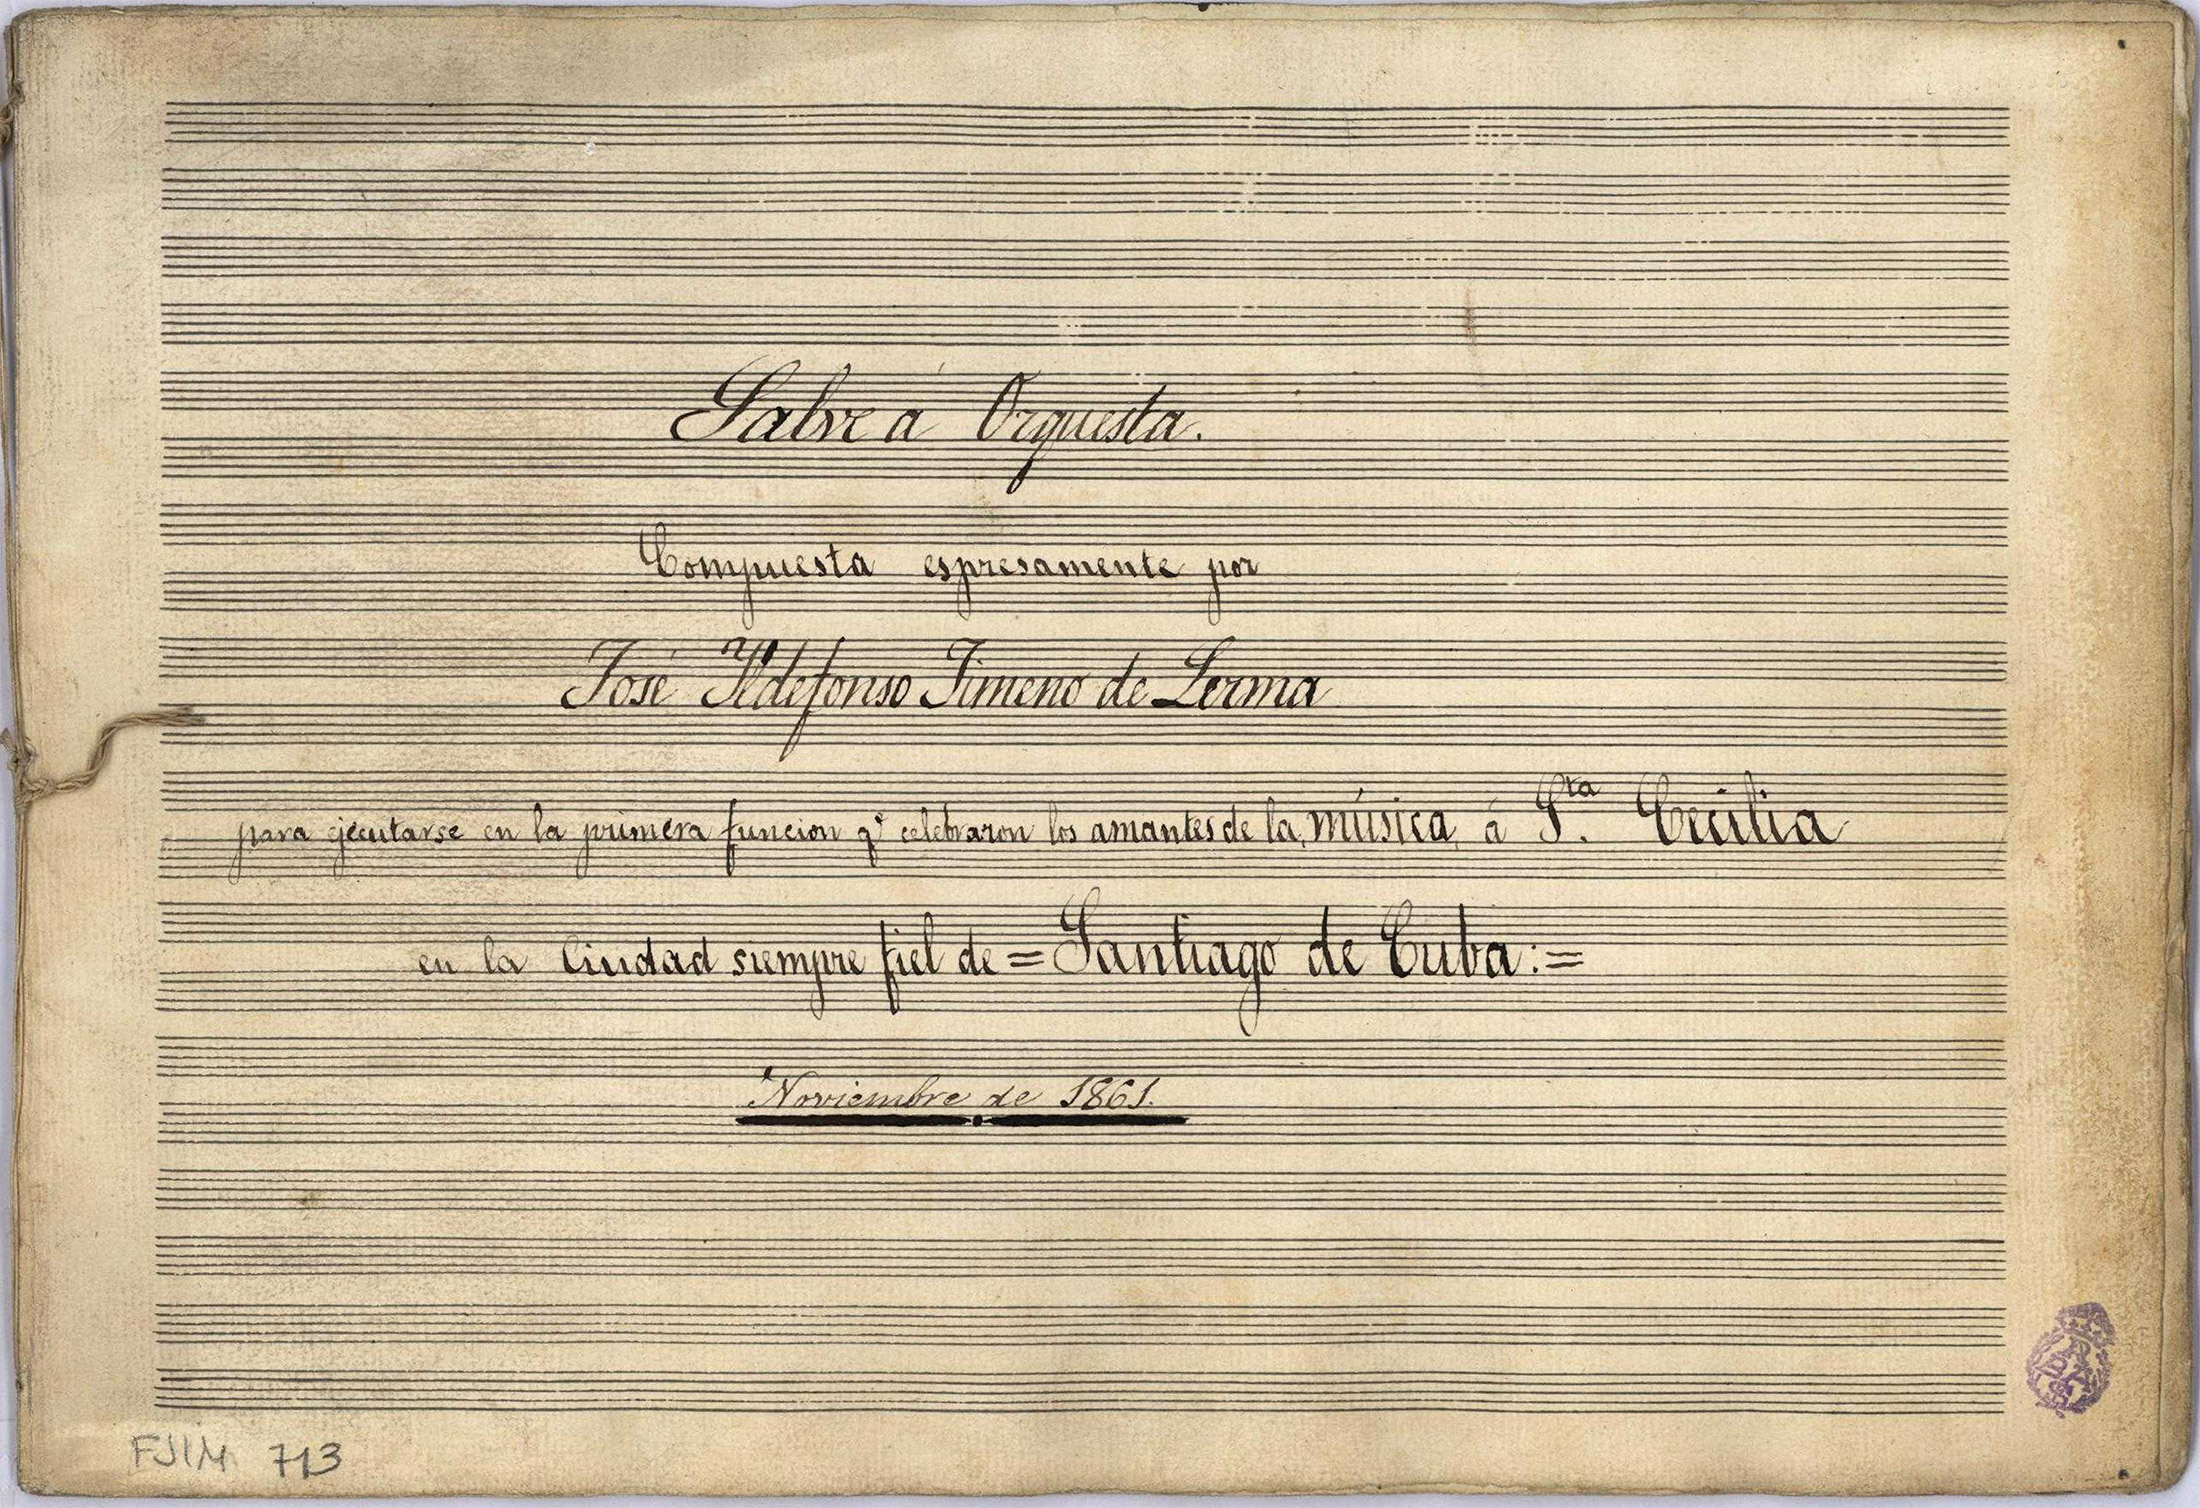 Salve á Orquesta.
Compuesta espresamente por
José Yldefonso Jimeno de Lerma
para ejecutarse en la primera funcion qᵉ celebraron los amantes de la música, á Sᵗᵃ. Cecilia
en la Ciudad siempre fiel de = Santiago de Cuba: =
Noviembre de 1861.
FJIM 713